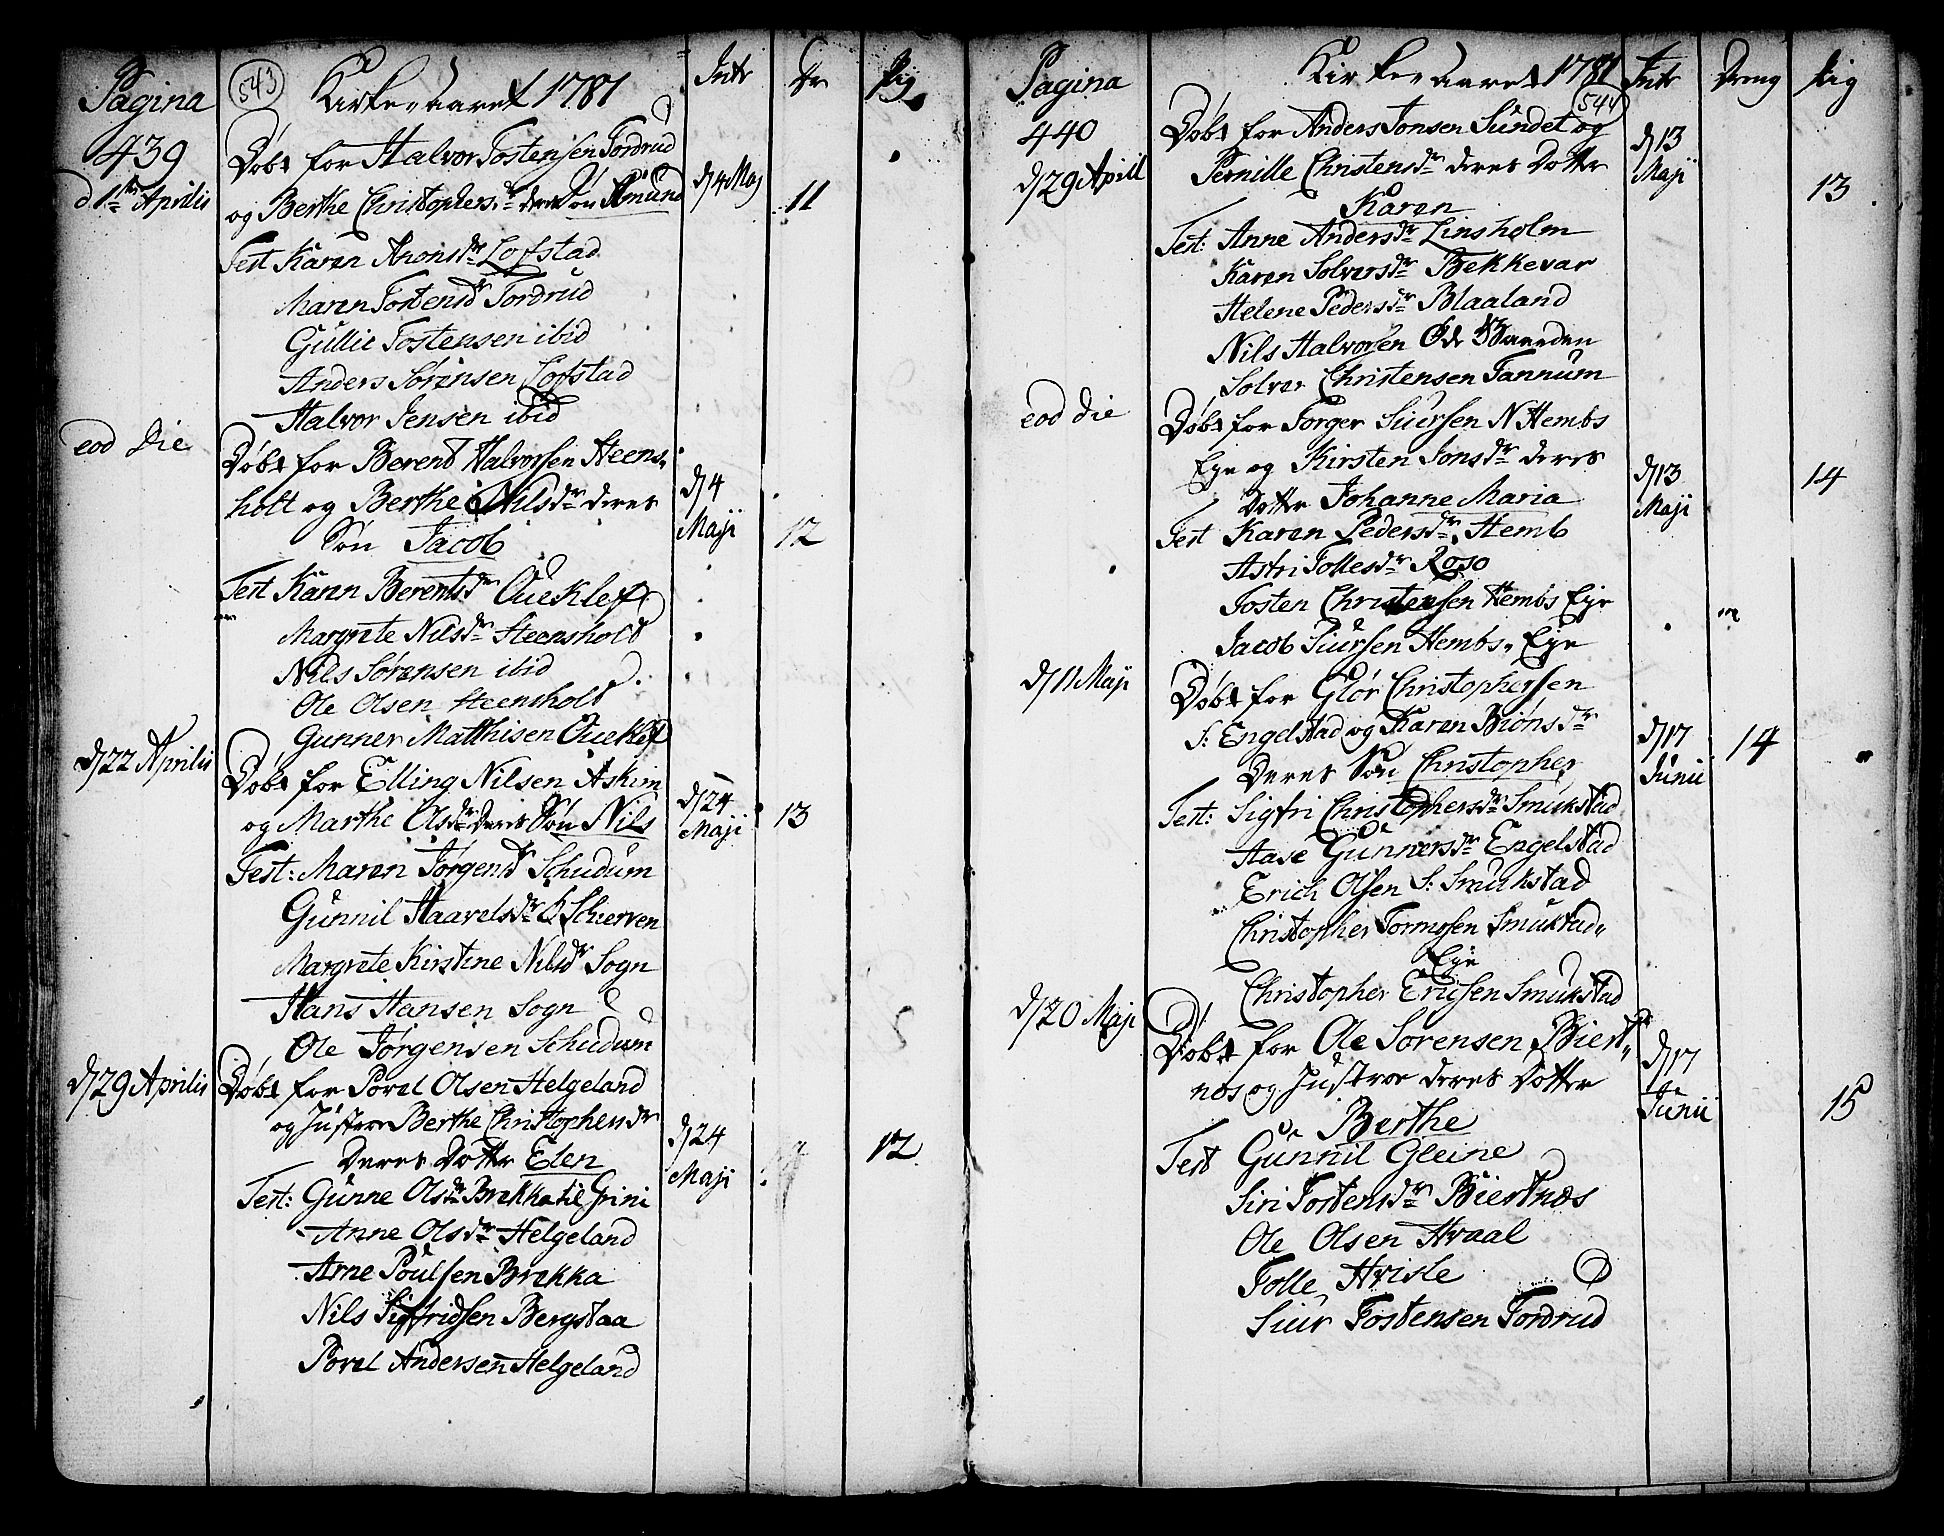 Pagina
439
543
Kirke-Aaret 1781
Intr
Dr
Pig
d 1ste Aprilis
Døbt for Halvor Tostensen Tordrud
og Berthe Christophersdr deres Søn Amund
d/4 Maj
11
Test Karen Aronsdr Lofstad
Maren Tostensdr Tordrud
Gullic Tostensen ibid
Anders Sørensen Lofstad
Halvor Jensen ibid
eod Die
Døbt for Berent Halvorsen Steens-
holt og Berthe Nilsdr deres
Søn Jacob
d/4
Maji
12
Test Karen Berentsdr Oueklef
Margrete Nilsdr Steensholt
Nils Sørensen ibid
Ole Olsen Steensholt
Gunner Matthisen Oueklef
d/22 Aprilis
Døbt for Elling Nilsen Askim
og Marthe Olsdr deres Søn Nils
d/24
Maji
13
Test: Maren Jørgensdr Schudum
Gunnil Haavelsdr Schierven
Margrete Kirstine Nilsdr Sogn
Hans Hansen Sogn
Ole Jørgensen Schudum
d/29 Aprilis
Døbt for Povel Olsen Helgeland
og Justroe Berthe Christophersdr
Deres Dotter Elen
d/24
Maji
12
Test: Gunne Olsdr Brekka til Grini
Anne Olsdr Helgeland
Arne Poulsen Brekka
Nils Sigfridsen Bergstaa
Povel Andersen Helgeland
Pagina
440
Kirke-Aaret 1781
544
Intr
Dreng
Pig
d/29 Aprill
Døbt for Anders Jonsen Sundet og
Pernille Christensdr deres Dotter
Karen
d/13
Maji
13
Test: Anne Andersdr Linsholm
Karen Solversdr Bekkevar
Helene Pedersdr Blaaland
Nils Halvorsen
Solver Christensen Tannum
eod die
Døbt for Torger Siursen N Hembs
Eye og Kirsten Jonsdr deres
Dotter Johanne Maria
d/13
Maji
14
Test Karen Pedersdr Hemb
Astri Tollesdr Roso
Tosten Christensen Hembs Eye
Jacob Siursen Hembs-Eye
d/11 Maji
Døbt for Glør Christophersen
S: Engelstad og Karen Biønsdr
Deres Søn Christopher
d/17
Junii
14
Test: Sigfri Christophersdr Smukstad
Aase Gunnersdr Engelstad
Erich Olsen S: Smukstad
Christopher Tormosen Smukstad-
Eye
Christopher Ericsen Smukstad
d/20 Maji
Døbt for Ole Sorensen Biert-
nes og Justroe deres Dotter
Berthe
d/17
Junii
15
Test Gunnil Gleine
Siri Tostensdr Biertnæs
Ole Olsen Hvaal
Tolle Hvisle
Siur Tostensen Tordrud